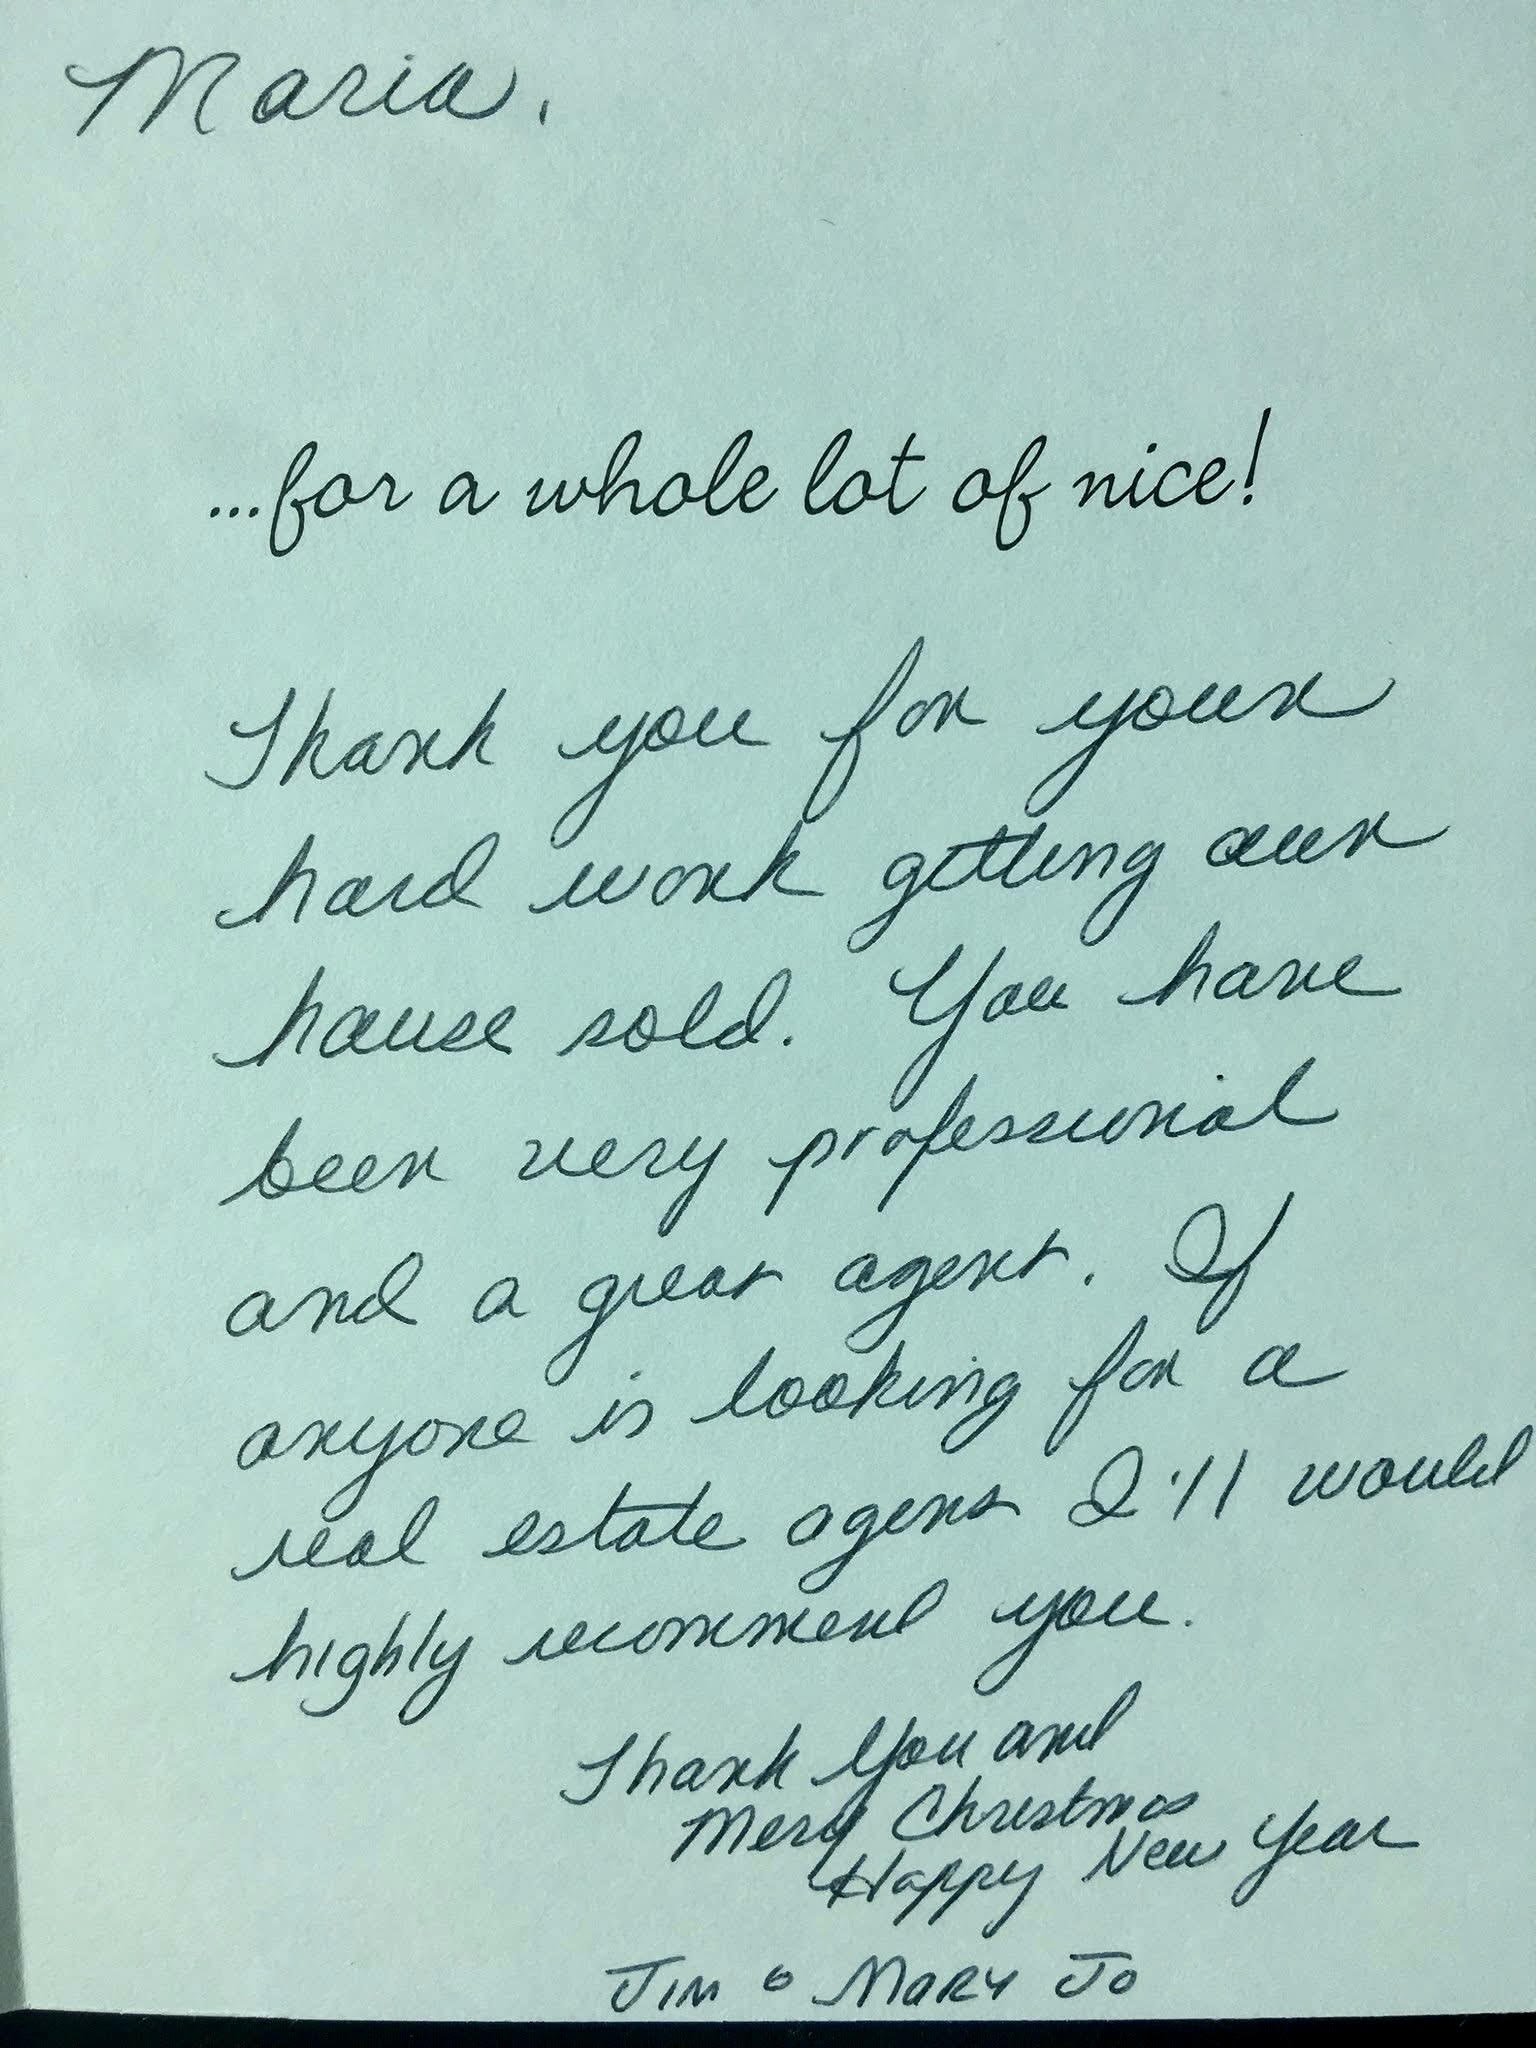 Maria,
...for a whole lot of nice!
Thank you for your
hard work getting our
house sold. You have
been very professional
and a great agent. If
anyone is looking for a
real estate agent I'll would
highly recommend you.
Thank You and
Mery Christmas
Happy New Year
Jim & Mary Jo